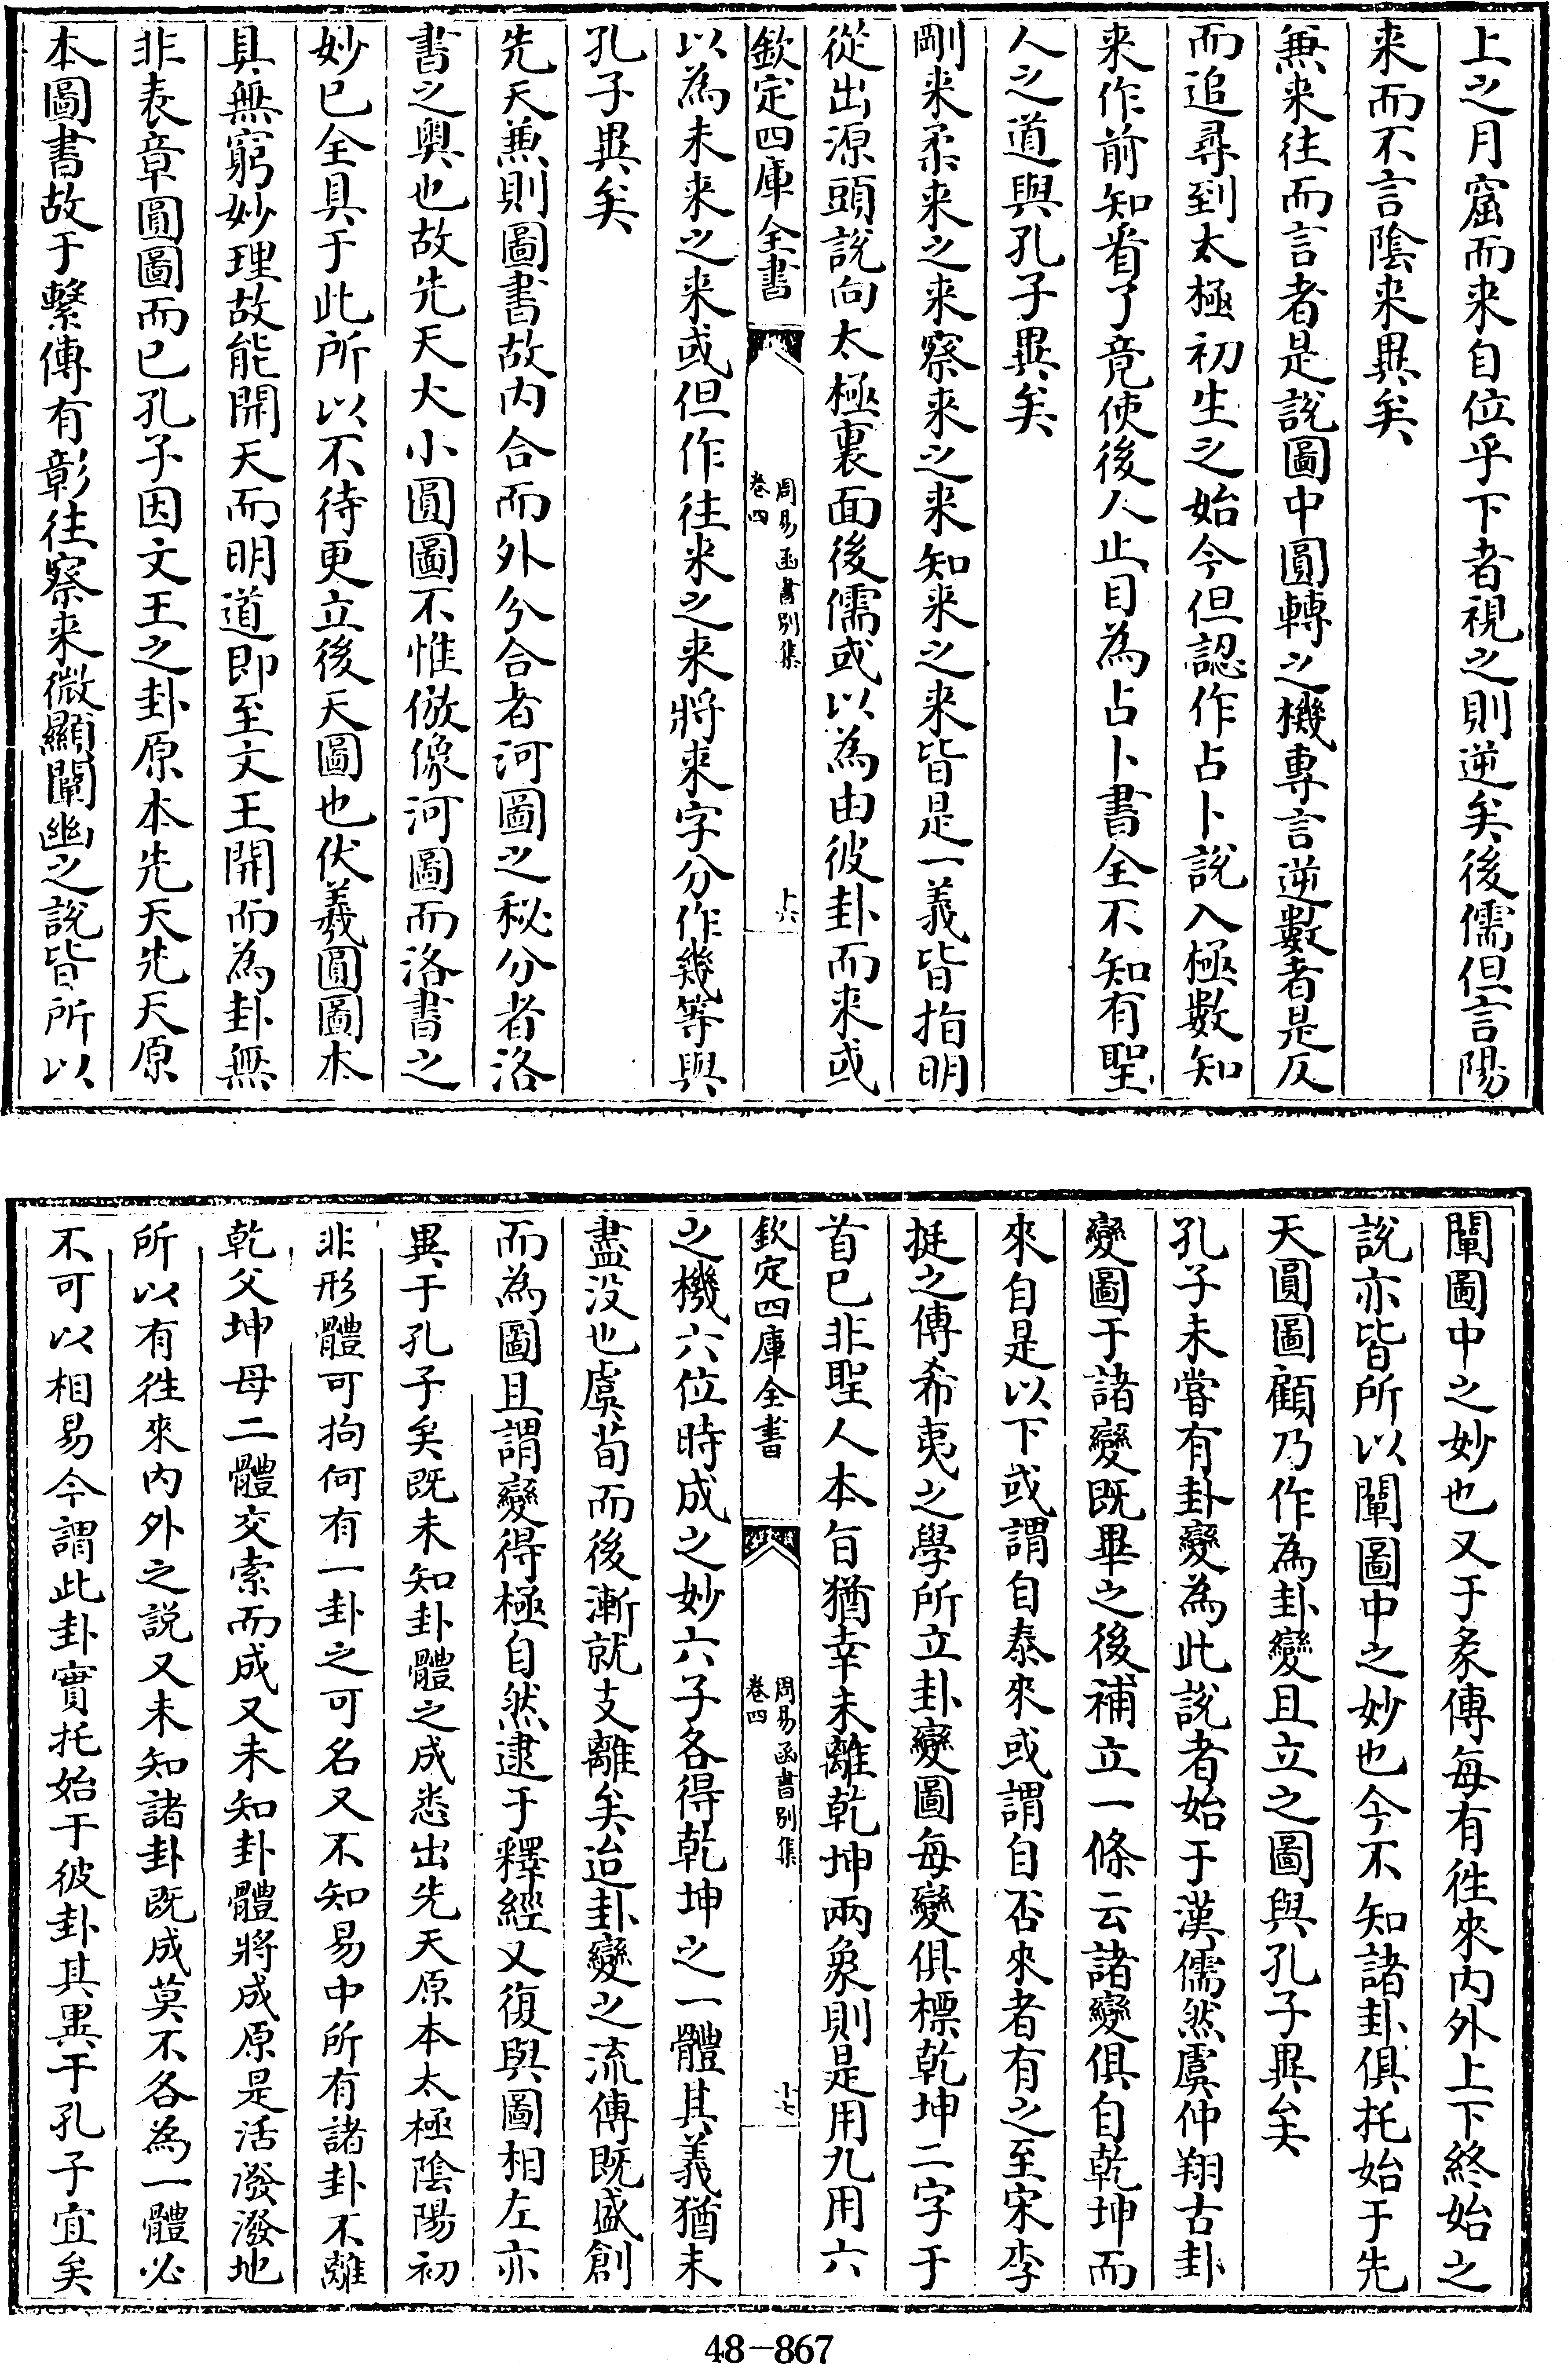 上之月窟而来自位乎下者視之則逆矣後儒但言陽
来而不言陰来異矣
無来往而言者是說圖中圓轉之機專言逆數者是反
而追尋到太極初生之始今但認作占卜說入極數知
来作前知看了竟使後人止目為占卜書全不知有聖
人之道與孔子異矣
剛来柔来之来察来之来知来之来皆是一義皆指明
從出源頭說向太極裏面後儒或以為由彼卦而来或
欽定四庫全書
周易函書别集
卷四
十六
以為未来之来或但作往来之来將来字分作幾等與
孔子異矣
先天無則圖書故内合而外分合者河圖之秘分者洛
書之奥也故先天大小圓圖不惟倣像河圖而洛書之
妙已全具于此所以不待更立後天圖也伏羲圓圖本
具無窮妙理故能開天而明道即至文王開而為卦無
非表章圓圖而已孔子因文王之卦原本先天先天原
本圖書故于繫傳有彰往察来微顯闡幽之說皆所以
闡圖中之妙也又于彖傳每有徃來内外上下終始之
說亦皆所以闡圖中之妙也今不知諸卦俱托始于先
天圓圖顧乃作為卦變且立之圖與孔子異矣
孔子未嘗有卦變為此說者始于漢儒然虞仲翔古卦
變圖于諸變既畢之後補立一條云諸變俱自乾坤而
來自是以下或謂自泰來或謂自否來者有之至宋李
挺之傳希夷之學所立卦變圖每變俱標乾坤二字于
首已非聖人本旨猶幸未離乾坤兩象則是用九用六
欽定四庫全書
周易函書别集
卷四
十七
之機六位時成之妙六子各得乾坤之一體其義猶未
盡没也虞荀而後漸就支離矣迨卦變之流傳既盛創
而為圖且謂變得極自然逮于釋經又復與圖相左亦
異于孔子矣既未知卦體之成悉出先天原本太極陰陽初
非形體可拘何有一卦之可名又不知易中所有諸卦不離
乾父坤母二體交索而成又未知卦體將成原是活潑潑地
所以有徃來内外之説又未知諸卦既成莫不各為一體必
不可以相易今謂此卦實托始于彼卦其異于孔子宜矣
48-867